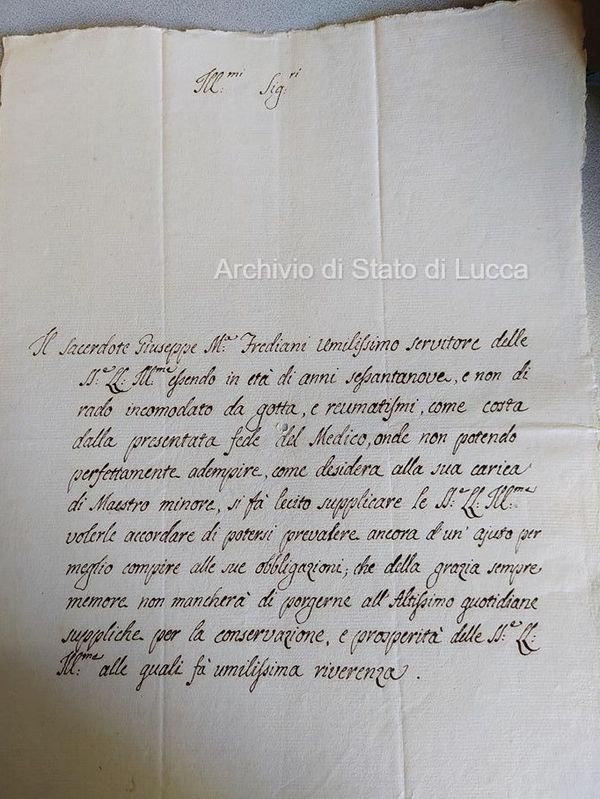 Ill.mi Sig.ri
Archivio di Stato di Lucca
Il Sacerdote Giuseppe M.a Frediani umilissimo servitore delle
SS.e LL: Ill.me essendo in età di anni sessantanove, e non di
rado incomodato da gotta, e reumatismi, come costa
dalla presentata fede del Medico, onde non potendo
perfettamente adempire, come desidera alla sua carica
di Maestro minore, si fà lecito supplicare le SS.e LL: Ill.me
volerle accordare di potersi prevalere ancora d'un' ajuto per
meglio compire alle sue obbligazioni; che della grazia sempre
memore non mancherà di porgerne all'Altissimo quotidiane
suppliche per la conservazione, e prosperità delle SS.e LL:
Ill.me alle quali fà umilissima riverenza.